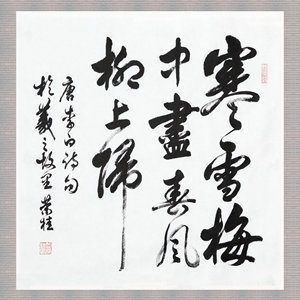 寒雪梅
中盡春風
柳上歸
唐李白诗句
於羲之故里 荣桂